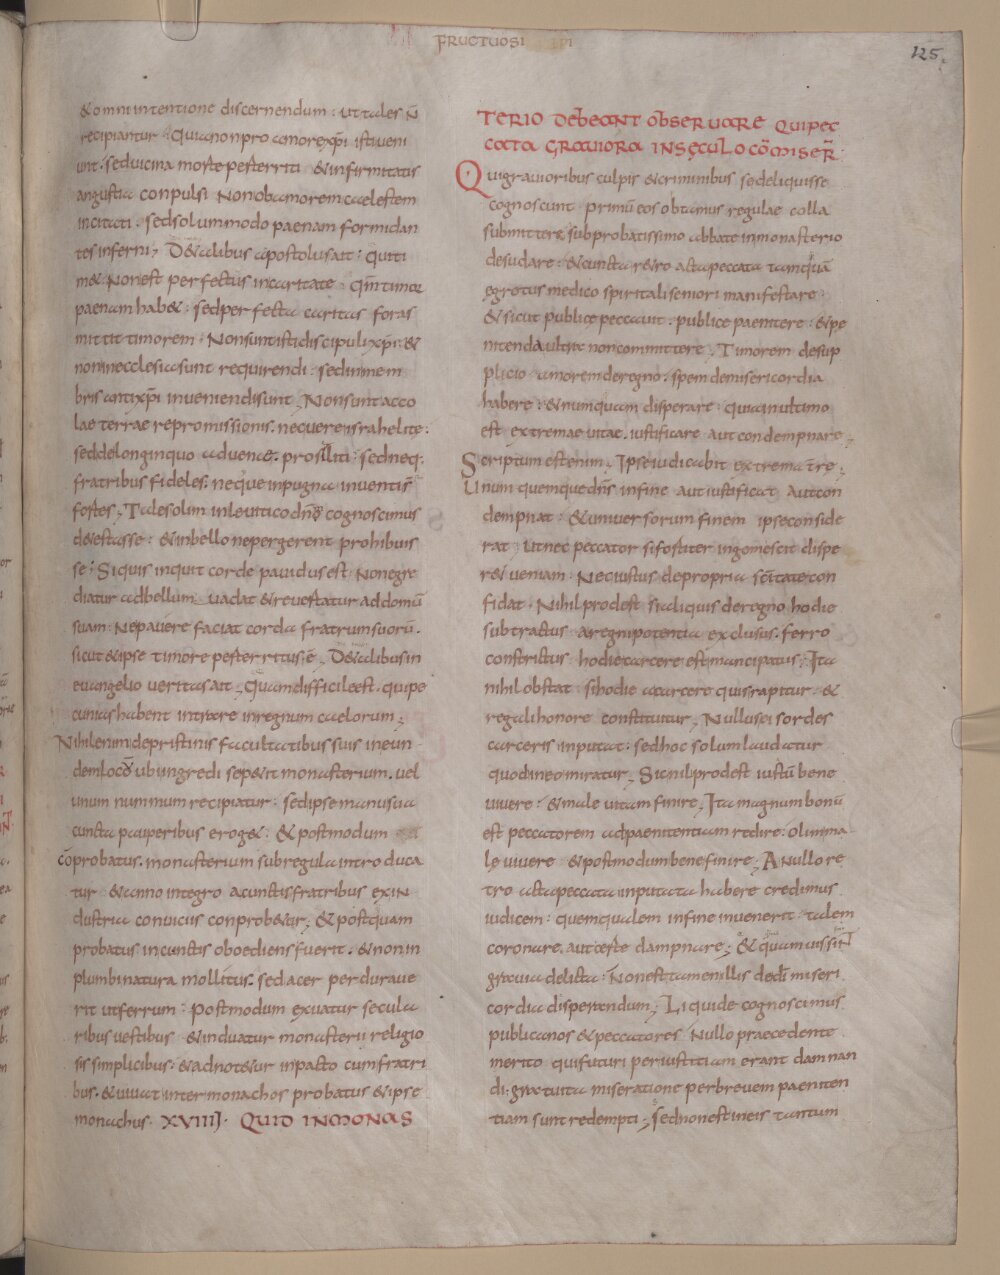 FRUCTUOSI EPI
125.
& omni intentione discernendum : ut tales n̄
recipiantur . Quia non pro amore xp̄i isti veni
unt . sed vicina morte perterriti & infirmitatis
angustia conpulsi Non ob amorem caelestem
incitati . sed solummodo paenam formidan
tes inferni ; De talibus apostolus ait : Qui ti
m& Non est perfectus in caritate . qm̄ timor
paenam hab& : sed perfecta caritas foras
mittit timorem . Non sunt isti discipuli xp̄i : &
non in ecclesia sunt requirendi . sed in mem
bris antixp̄i inveniendi sunt ; Non sunt acco
lae terrae repromissionis . nec vere israhelite :
sed de longinquo advenae . prosiliti : sed neq;
fratribus fideles . neque in pugna inventi sunt
fortes ; Tales olim in levitico dn̄s cognoscimus
d&estasse : & in bello ne pergerent prohibuis
se : Si quis inquit corde pavidus est Non egre
diatur ad bellum vadat & revertatur ad domū
suam . Ne pavere faciat corda fratrum suorū .
sicut & ipse timore perterritus ē ; De talibus in
evangelio veritas ait ; Quam difficile est . qui pe
cunias habent intrare in regnum caelorum ;
Nihil enim de pristinis facultatibus suis in eun
dem locū ubi ingredi sep&it monasterium . vel
unum nummum recipiatur : sed ipse manu sua
cuncta pauperibus erog& . & postmodum
cōprobatus . monasterium sub regula introduca
tur & anno integro a cunctis fratribus ex in
dustria convicus conprob&ur ; & postquam
probatus in cunctis oboediens fuerit . & non in
plumbi natura mollitus . sed acer perdurave
rit ut ferrum : Postmodum exuatur secula
ribus vestibus & induatur monasterii religio
sis simplicibus : & adnot&ur in pacto cum fratri
bus . & vivat inter monachos probatus & ipse
monachus . XVIIIJ . QUID IN MONAS
TERIO DEBEANT OBSERUARE QUI PEC
CATA GRAVIORA IN SĘCULO CŌMISER̄
Qui gravioribus culpis & criminibus se deliquisse
cognoscunt primū eos obtamus regulae colla
submittere sub probatissimo abbate in monasterio
desudare : & cuncta r&ro acta peccata tamquā
egrotus medico spiritali seniori manifestare :
& sicut publice peccavit . publice paenitere : & pe
nitenda ultra non committere ; Timorem de sup
plicio amorem de regno . spem de misericordia
habere : & numquam disperare : quia in ultimo
est extremae vitae . iustificare aut condempnare ;
Scriptum est enim ; Ipse iudicabit extrema t̄re ;
Unum quemque dn̄s in fine aut iustificat Aut con
dempnat : & universorum finem ipse conside
rat : ut nec peccator si fortiter ingemescit dispe
r& veniam . Nec iustus de propria sc̄itate con
fidat . Nihil prodest si aliquis de regno hodie
subtractus a regni potentia exclusus . ferro
constrictus hodie carcere est mancipatus ; Ita
nihil obstat si hodie a carcere quis rapitur . &
regali honore constituitur ; Nullus ei sordes
carceris inputat : sed hoc solum laudatur
quod in eo miratur ; Sic nil prodest iustū bene
vivere : & male vitam finire ; Ita magnum bonū
est peccatorem ad paenitentiam redire . olim ma
le vivere & postmodum bene finire ; A Nullo re
tro acta peccata inputata habere credimus
iudicem : quemqualem in fine invenerit talem
coronare . aut certe dampnare ; & quamvis sint
gravia delicta : Non est tamen illis de dī miseri
cordia disperandum ; Liquide cognoscimus
publicanos & peccatores Nullo praecedente
merito qui futuri per iustitiam erant damnan
di . gratuita miseratione per brevem paeniten
tiam sunt redempti ; sed honesti neis tantum